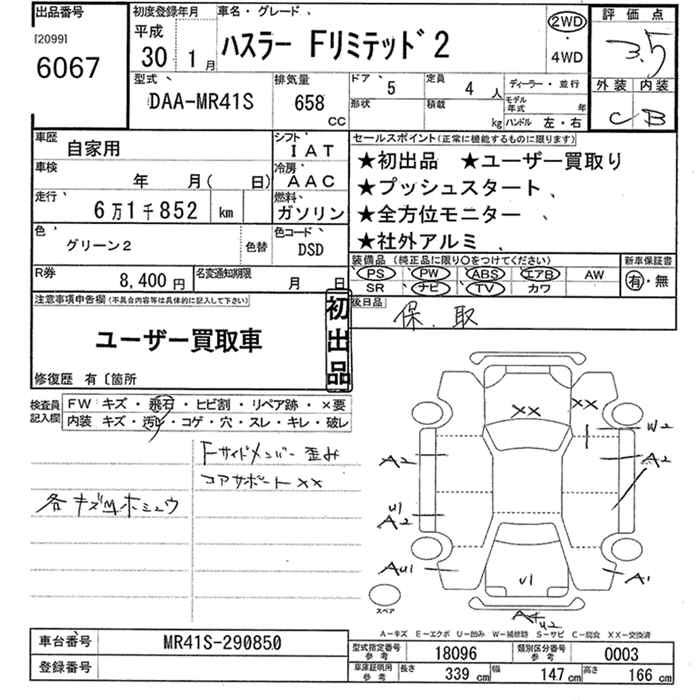 出品番号
[2099]
6067
初度登録年月
平成
30 1月
車名・グレード、
ハスラー Fリミテッド2
2WD
・
4WD
評価点
3.5
外装 内装
C B
型式、
DAA-MR41S
排気量
658
CC
ドア、 5
定員 4 人
ディーラー・並行
形状
積載 kg
モデル年式 年
ハンドル 左・右
車歴 自家用
シフト、
IAT
車検 年 月( 日)
冷房、
AAC
走行、 6万1千852 km
燃料、
ガソリン
色、 グリーン2
色替
色コード、
DSD
R券 8,400円
名変通知期限 月 日
セールスポイント(正常に機能するものに限ります)
★初出品 ★ユーザー買取り
★プッシュスタート、
★全方位モニター、
★社外アルミ、
装備品(純正品に限り○をつけてください)
新車保証書
PS PW ABS エアB AW
SR ナビ TV カワ
有・無
後日品
保、取
注意事項申告欄(不具合内容等は具体的に記入して下さい)
ユーザー買取車
初出品
修復歴 有〔箇所
検査員記入欄
FW キズ・飛石・ヒビ割・リペア跡・×要
内装 キズ・汚れ・コゲ・穴・スレ・キレ・破レ
Fサイドメンバー歪み
コアサポートXX
各キズ凹ホショウ
XX
XX
W2
A2
A2
U1
A2
AU1
U1
A1
AU2
スペア
A−キズ E−エクボ U−凹み W−補修跡 S−サビ C−腐食 XX−交換済
車台番号 MR41S-290850
登録番号
型式指定番号参考 18096
類別区分番号参考 0003
車庫証明用参考 長さ 339 cm 幅 147 cm 高さ 166 cm